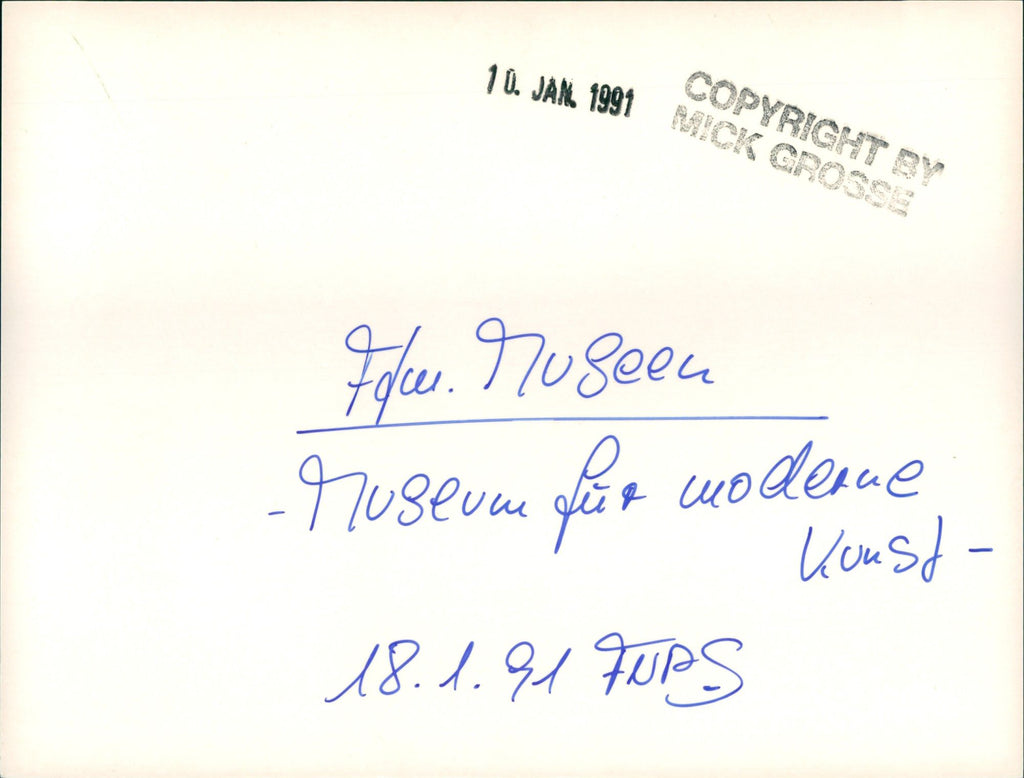 10. JAN. 1991
COPYRIGHT BY
MICK GROSSE
Ffm. Museen
- Museum für moderne
Kunst -
18.1.91